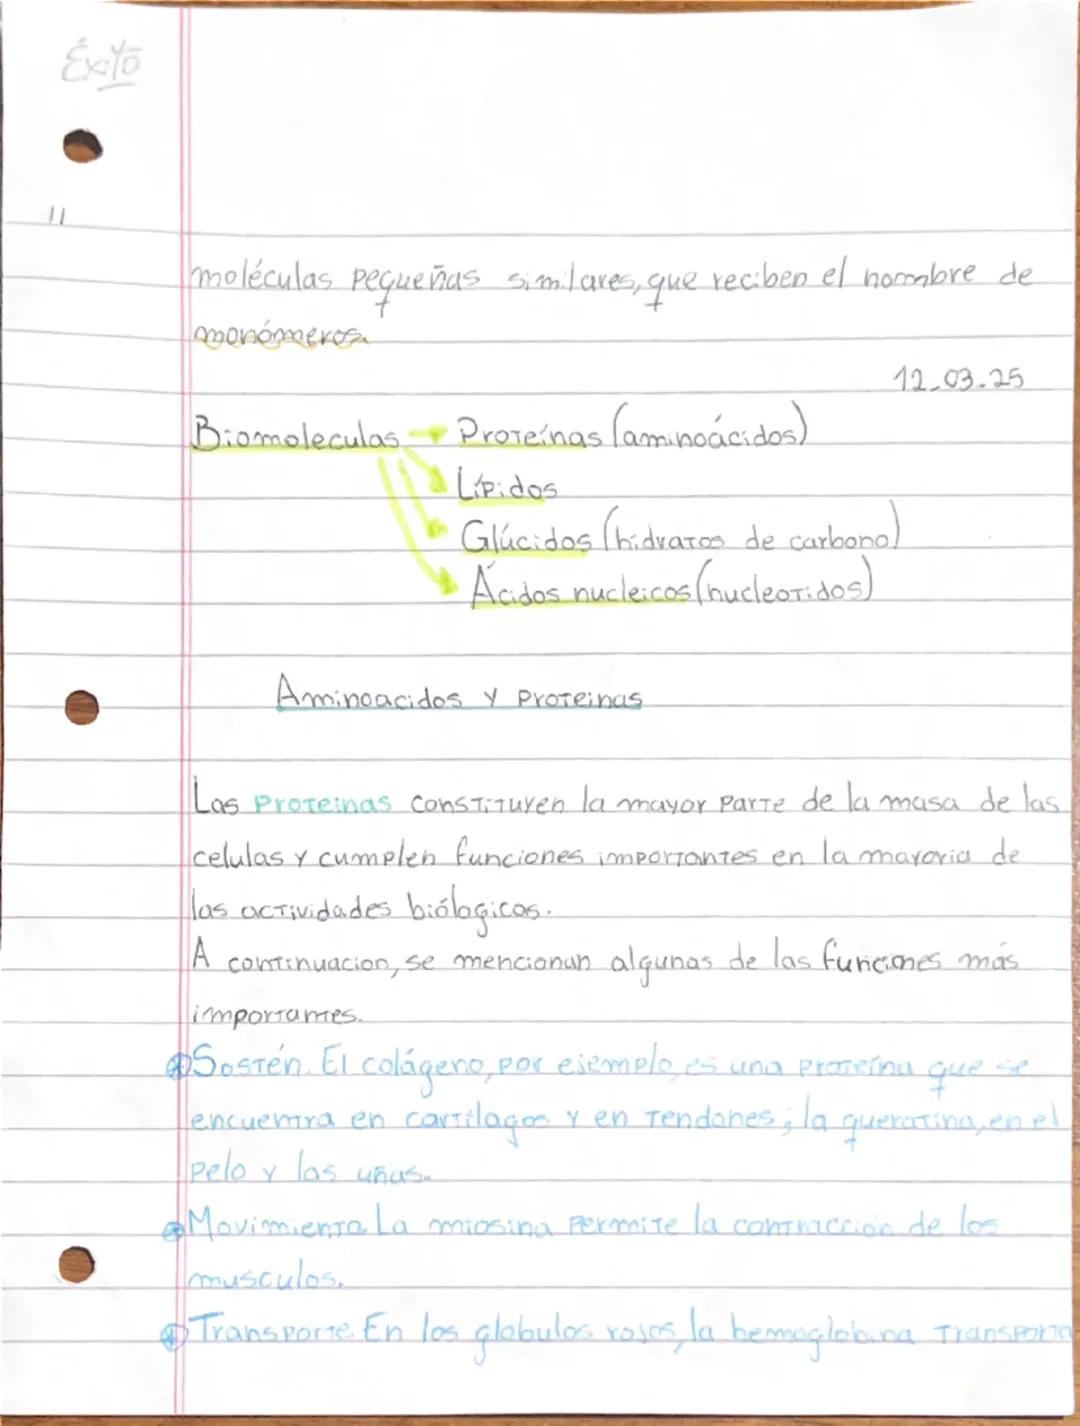 Éxito
11
moléculas pequeñas similares, que reciben el nombre de
monómeros.
12-03-25
Biomoleculas → Proteínas (aminoácidos)
Lípidos
Glúcidos (hidratos de carbono)
Ácidos nucleicos (nucleotidos)
Aminoacidos y proteinas
Las proteinas constituyen la mayor parte de la masa de las
celulas y cumplen funciones importantes en la mayoria de
las actividades biólogicas.
A continuacion, se mencionan algunas de las funciones más
importantes.
Sostén. El colágeno, por ejemplo, es una proteína que se
encuentra en cartilagos y en tendones; la queratina, en el
pelo y las uñas.
Movimiento. La miosina permite la contracción de los
musculos.
Transporte. En los globulos rojos, la hemoglobina transporta